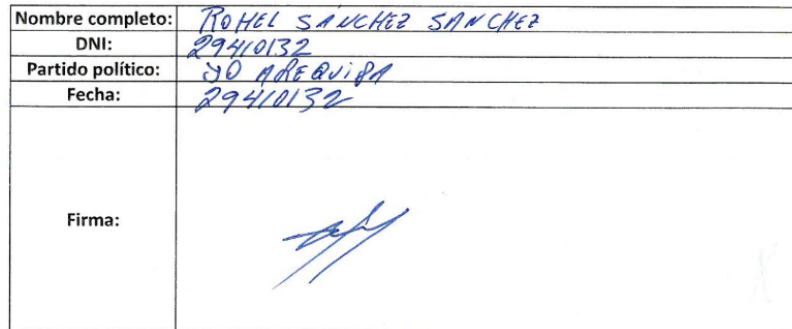 Nombre completo: ROHEL SANCHEZ SANCHEZ
DNI: 29410132
Partido político: YO AREQUIPA
Fecha: 29410132
Firma: